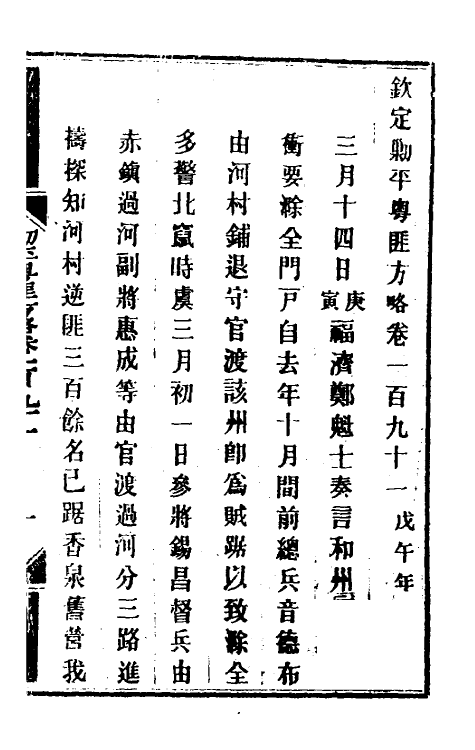 欽定勦平粵匪方略卷一百九十一 戊午年
三月十四日庚寅福濟鄭魁士奏言和州
衝要滁全門戶自去年十月間前總兵音德布
由河村鋪退守官渡該州卽爲賊踞以致滁全
多警北竄時虞三月初一日參將錫昌督兵由
赤鎮過河副將惠成等由官渡過河分三路進
擣探知河村逆匪三百餘名已踞香泉舊營我